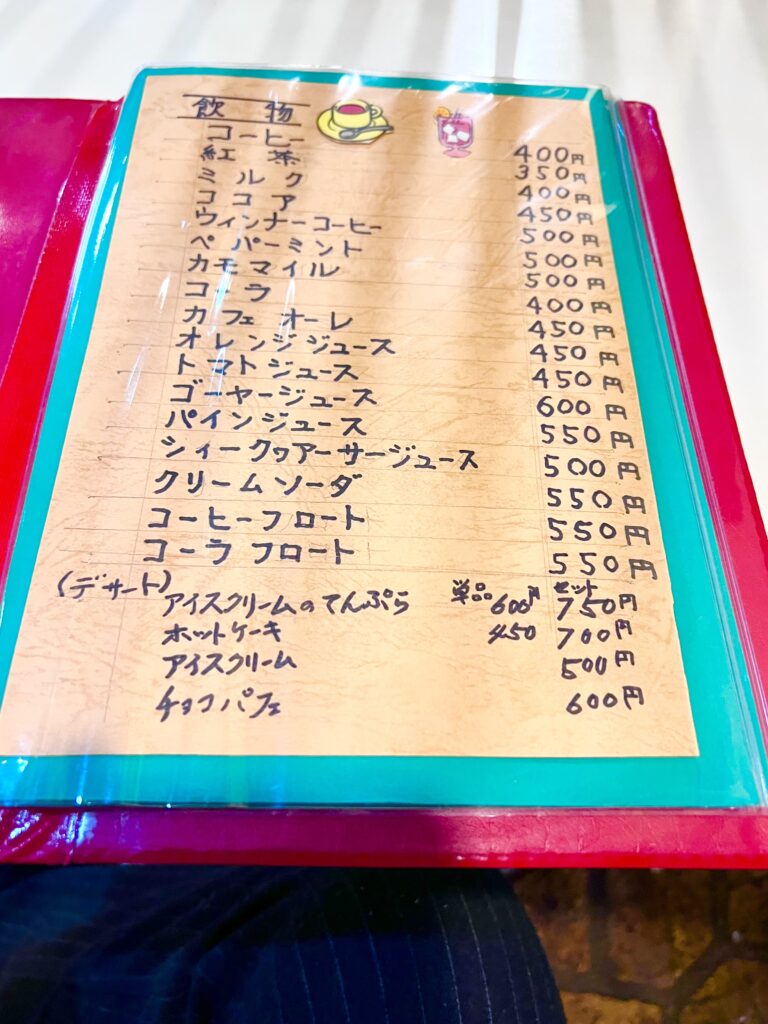 飲物
コーヒー 400円
紅茶 350円
ミルク 400円
ココア 450円
ウィンナーコーヒー 500円
ペパーミント 500円
カモマイル 500円
コーラ 400円
カフェオーレ 450円
オレンジジュース 450円
トマトジュース 450円
ゴーヤージュース 600円
パインジュース 550円
シィークヮアーサージュース 500円
クリームソーダ 550円
コーヒーフロート 550円
コーラフロート 550円
(デザート) 単品 セット
アイスクリームのてんぷら 600円 750円
ホットケーキ 450 700円
アイスクリーム 500円
チョコパフェ 600円